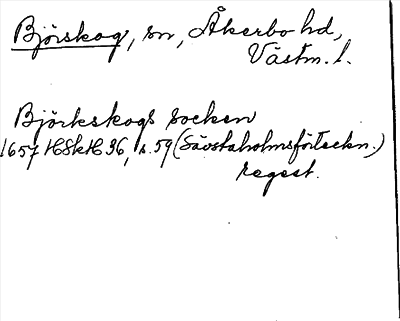 Björskog, sn, Åkerbo hd,
Västm. l.
Björkskogs socken
1657 HSkH 36, s. 59 (Sävstaholmsförteckn.)
regest.